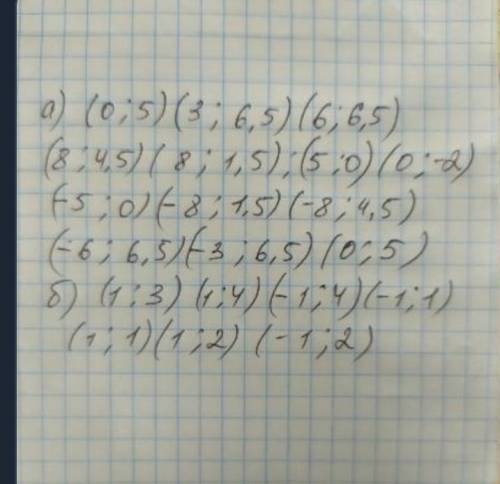 а) (0 ; 5) (3 ; 6,5) (6 ; 6,5)
(8 ; 4,5) ( 8 ; 1,5) ; (5 ; 0) (0 ; -2)
(-5 ; 0) (-8 ; 1,5) (-8 ; 4,5)
(-6 ; 6,5) (-3 ; 6,5) (0 ; 5)
б) (1 ; 3) (1 ; 4) (-1 ; 4) (-1 ; 1)
(1 ; 1) (1 ; 2) (-1 ; 2)